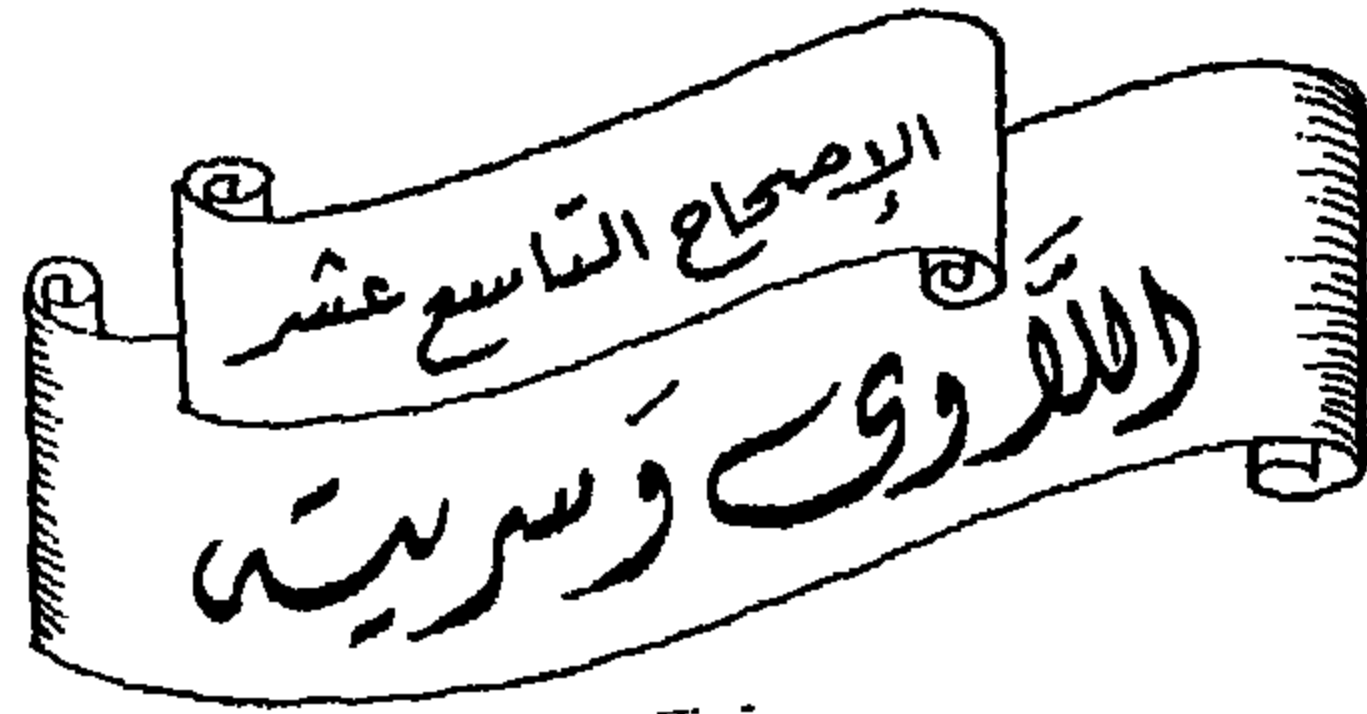 الإصحاح التاسع عشر
اللَّاوى وَسريته